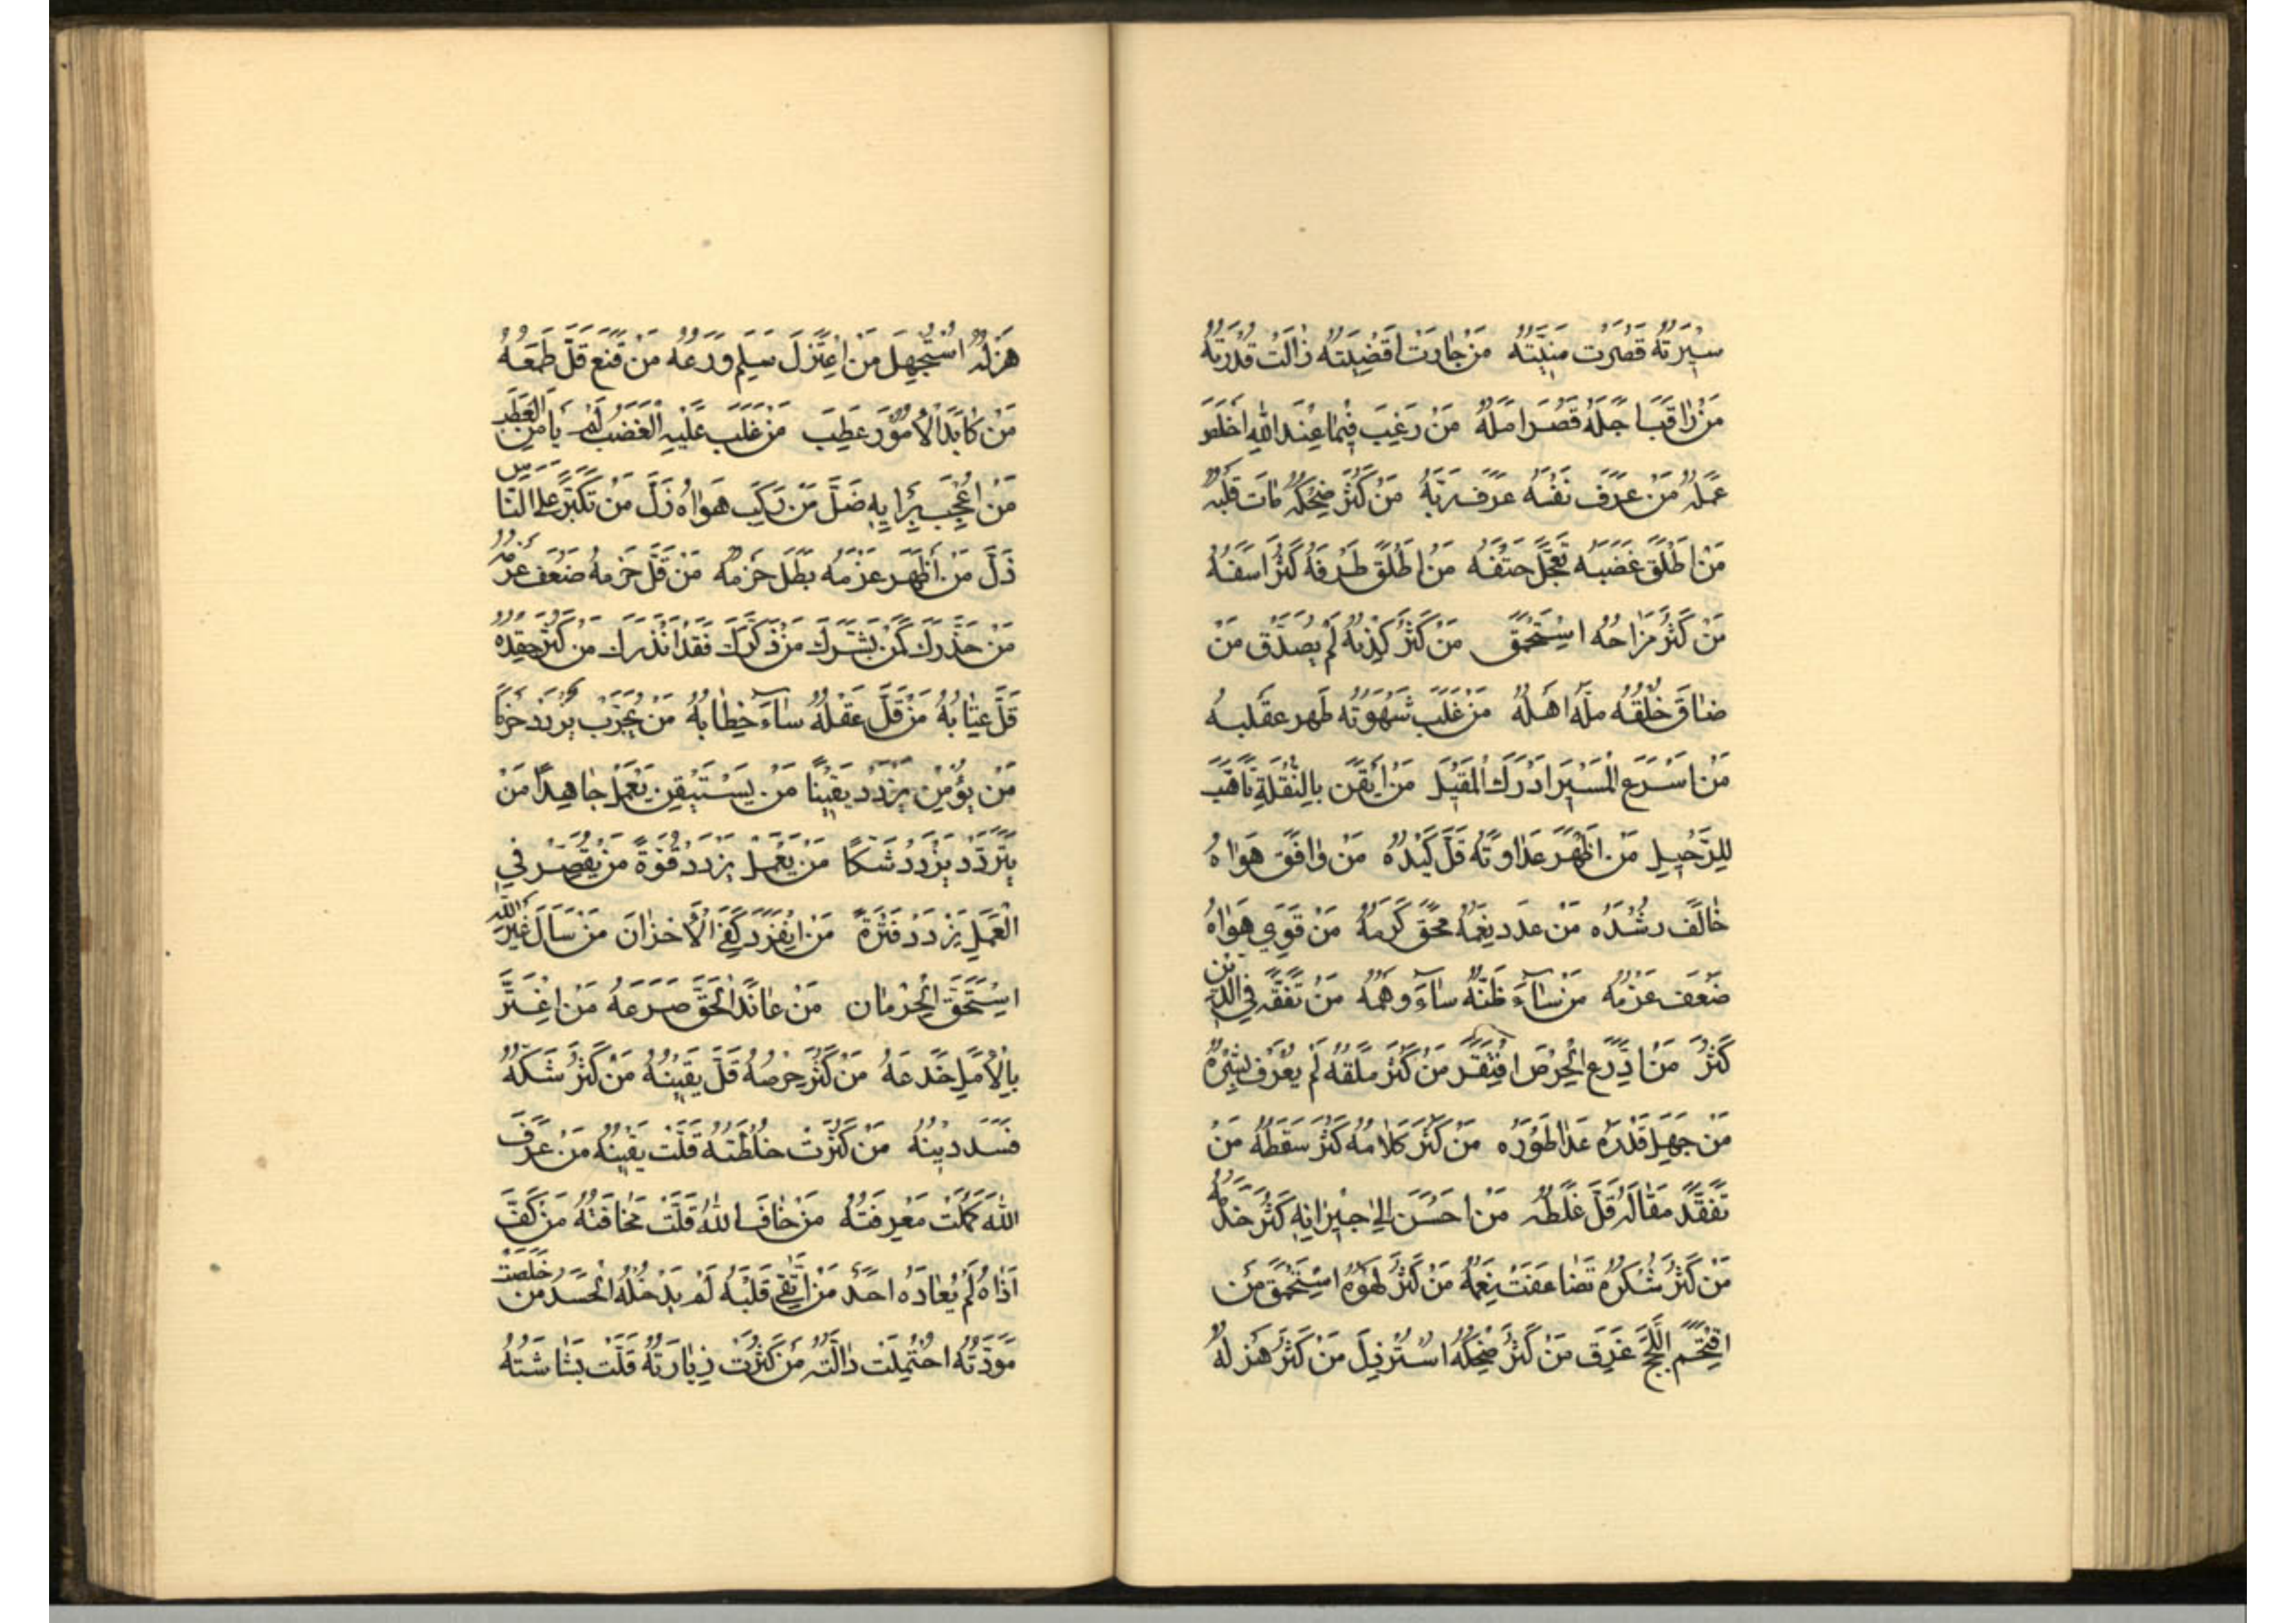 سيرته قصرت منيته من جارت اقضيته زالت قدرته
من راقب اجله قصر امله من رغب فيما عند الله اخلص
عمله من عرف نفسه عرف ربه من كثر ضحكه مات قلبه
من اطلق غضبه تعجل حتفه من اطلق طرفه كثر اسفه
من كثر مزاحه استحمق من كثر كذبه لم يصدق من
ضاق خلقه مله اهله من غلب شهوته ظهر عقله
من اسرع المسير ادرك المقيل من ايقن بالنقلة تاهب
للرحيل من اظهر عداوته قل كيده من وافق هواه
خالف رشده من عدد نعمه محق كرمه من قوي هواه
ضعف عزمه من ساء ظنه ساء وهمه من تفقه في الدين
كثر من ادرع الحرص افتقر من كثر ملقه لم يعرف بشره
من جهل قدره عدا طوره من كثر كلامه كثر سقطه من
تفقد مقاله قل غلطه من احسن الى جيرانه كثر خدمه
من كثر شكره تضاعفت نعمه من كثر لهوه استحمق من
اقتحم اللجج غرق من كثر ضحكه استرذل من كثر هزله
هزله استجهل من اعتزل سلم ورعه من قنع قل طمعه
من كابد الامور عطب من غلب عليه الغضب لم يامن العطب
من اعجب برايه ضل من ركب هواه زل من تكبر على الناس
ذل من اظهر عزمه بطل حزمه من قل حزمه ضعف عزمه
من حذرك كمن بشرك من ذكرك فقد انذرك من كثر حقده
قل عتابه من قل عقله ساء خطابه من يجرب يزدد حزما
من يؤمن يزدد يقينا من يستيقن يعمل جاهدا من
يتردد يزدد شكا من يعمل يزدد قوة من يقصر في
العمل يزدد فترة من انفرد كفي الاحزان من سال غير الله
استحق الحرمان من عاند الحق صرعه من اغتر
بالامل خدعه من كثر حرصه قل يقينه من كثر شكه
فسد دينه من كثرت خلطته قلت يقينه من عرف
الله كملت معرفته من خاف الله قلت مخافته من كف
اذاه لم يعاده احد من اتقى قلبه لم يدخله الحسد من خلصت
مودته احتملت دالته من كثرت زيارته قلت بشاشته